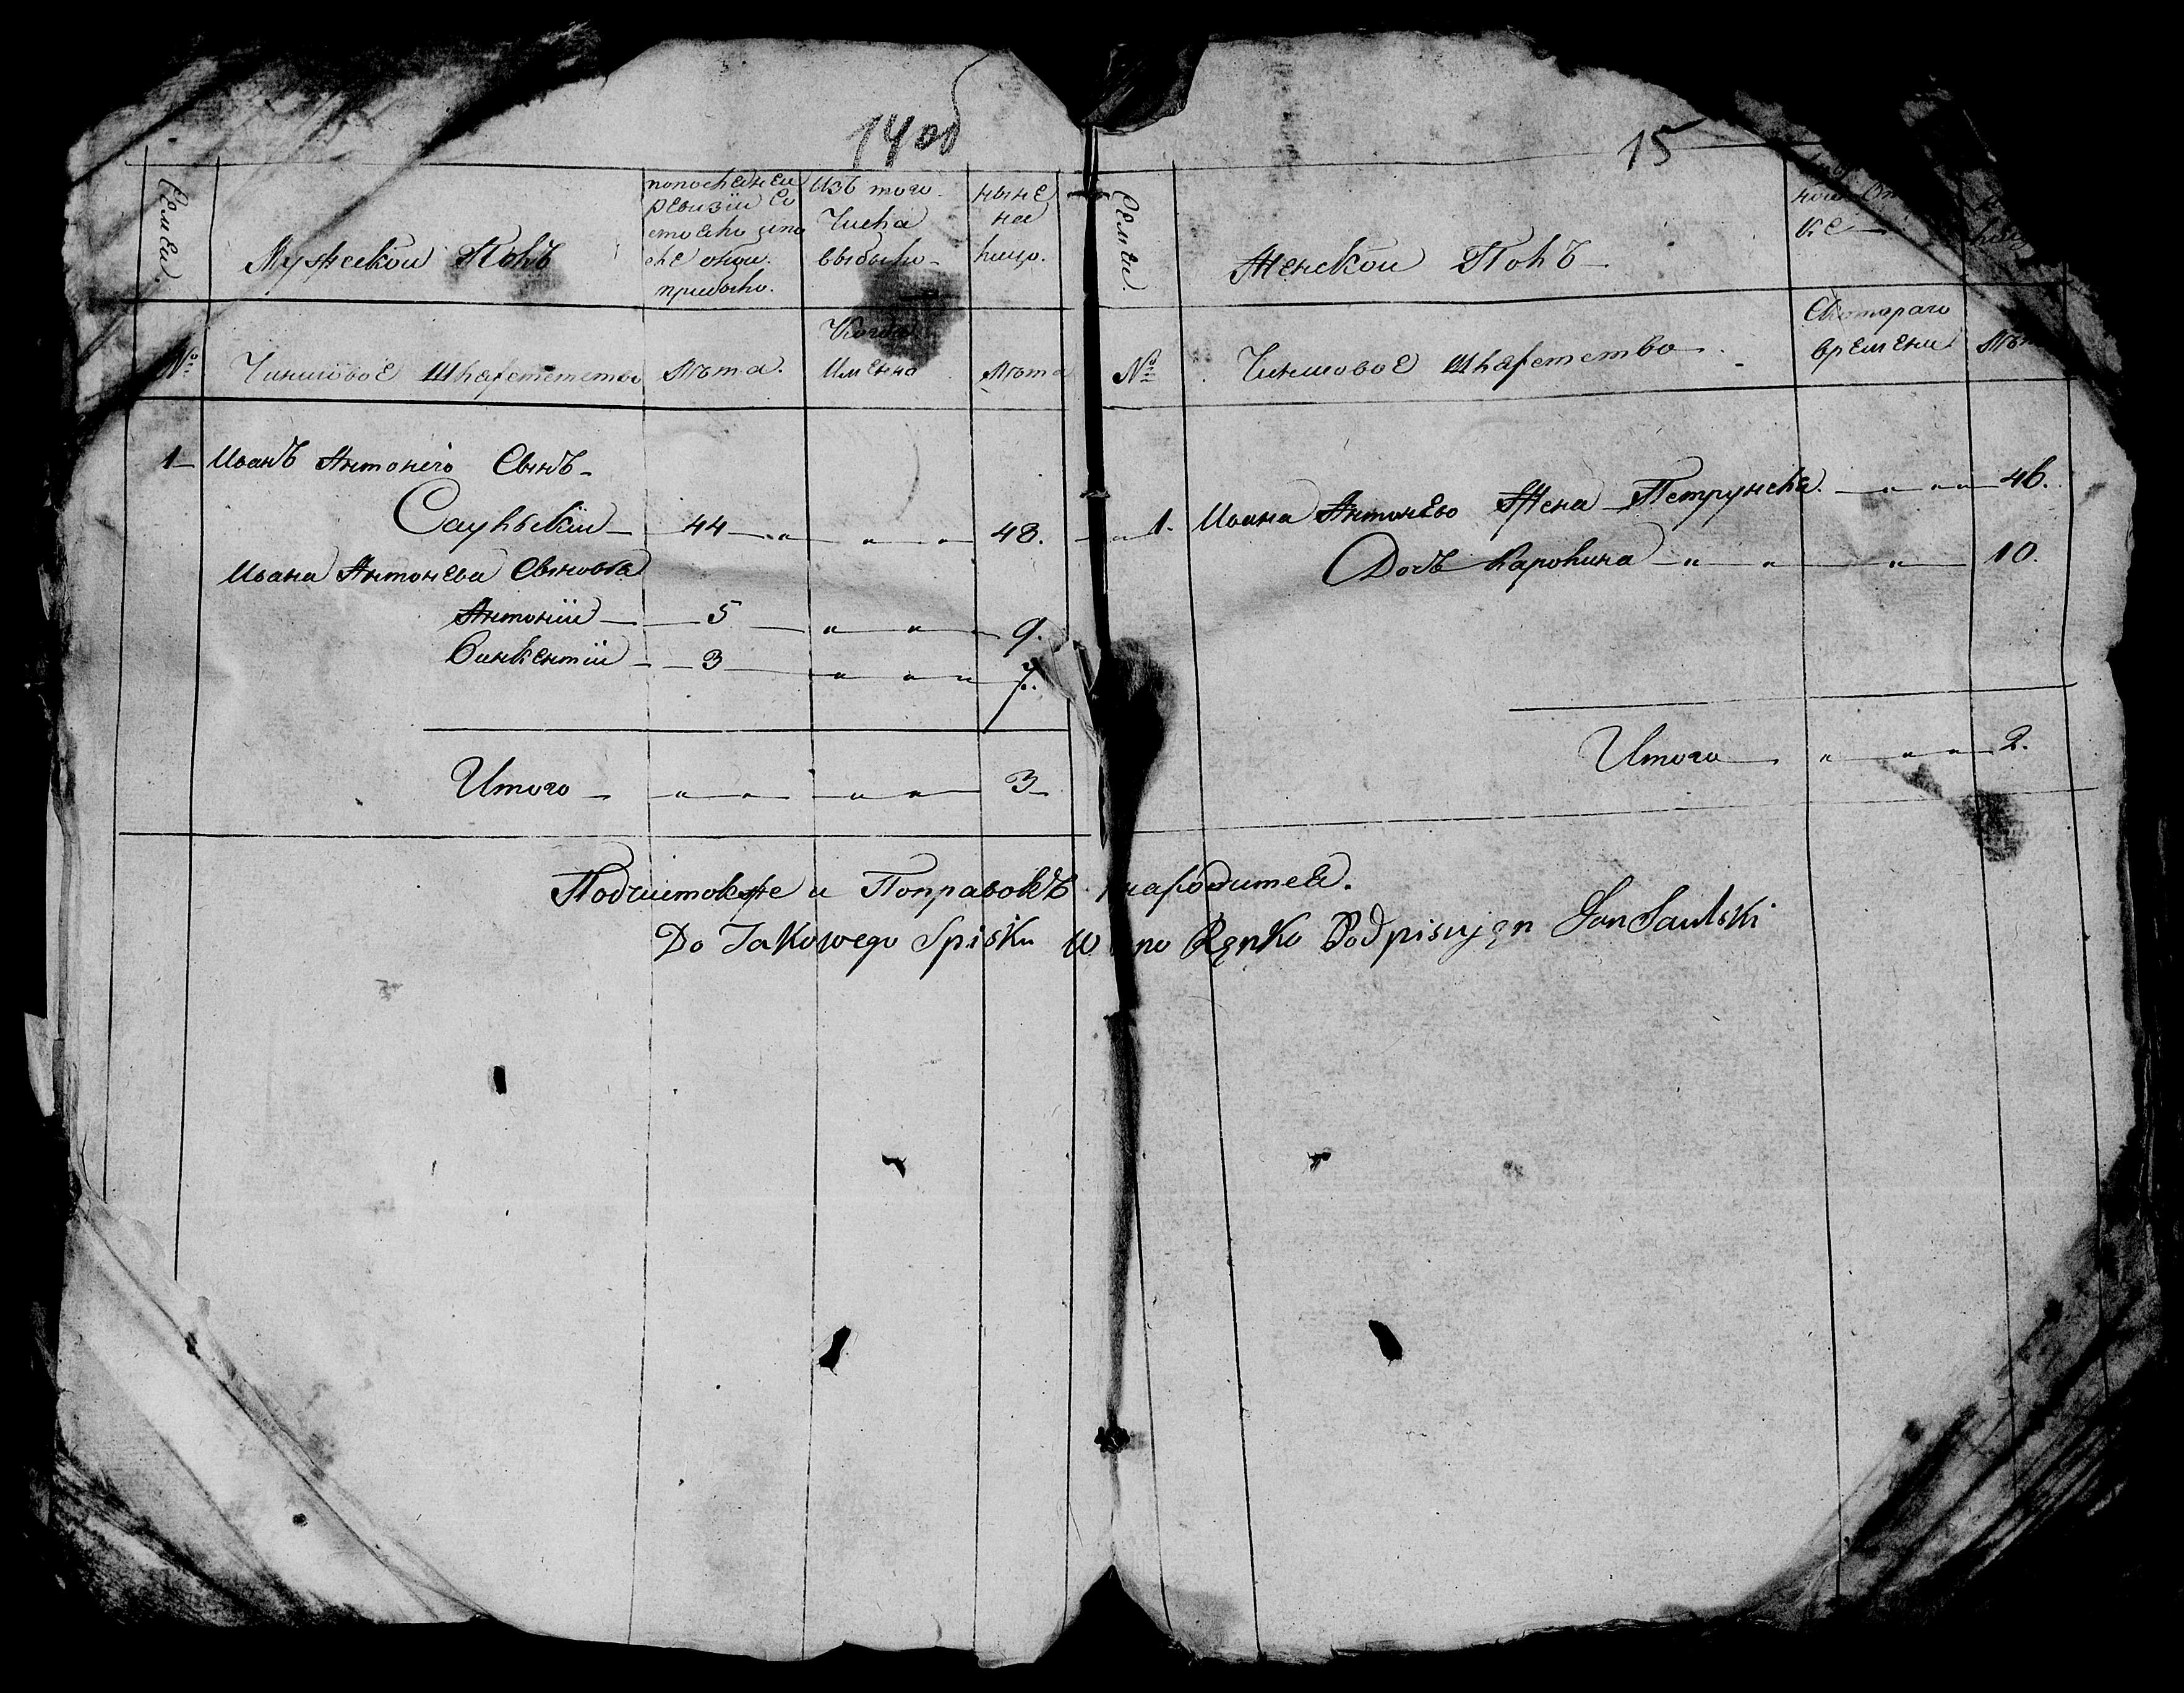 14 об
Семеи
Мужескои Полъ
по последнеи
ревизіи со
стояло и по
сле онои
прибыло.
Изъ того
Числа
выбыло
ныне
на
лицо.
№
Чиншовое Шляхетство
Лѣта.
Когда
Имянно
Лѣта
1 Иванъ Антоніго Сынъ
Саульскіи 44 " " " 48.
Ивана Антонева Сыновья
Антоніи 5 " " 9.
Винкентіи 3 " " " 7.
Итого " " " " 3
15
Семеи
Женскои Полъ
№
Чиншовое Шляхетство
Скотораго
времени
Лѣта
1. Ивана Антонево Жена Петрунеля " " " 46.
Дочь Каролина " " " 10.
Итого " " " 2.
Подчистокже и Поправокъ
Do Takowego Spisku Rękko Podpisuję Jan Saulski